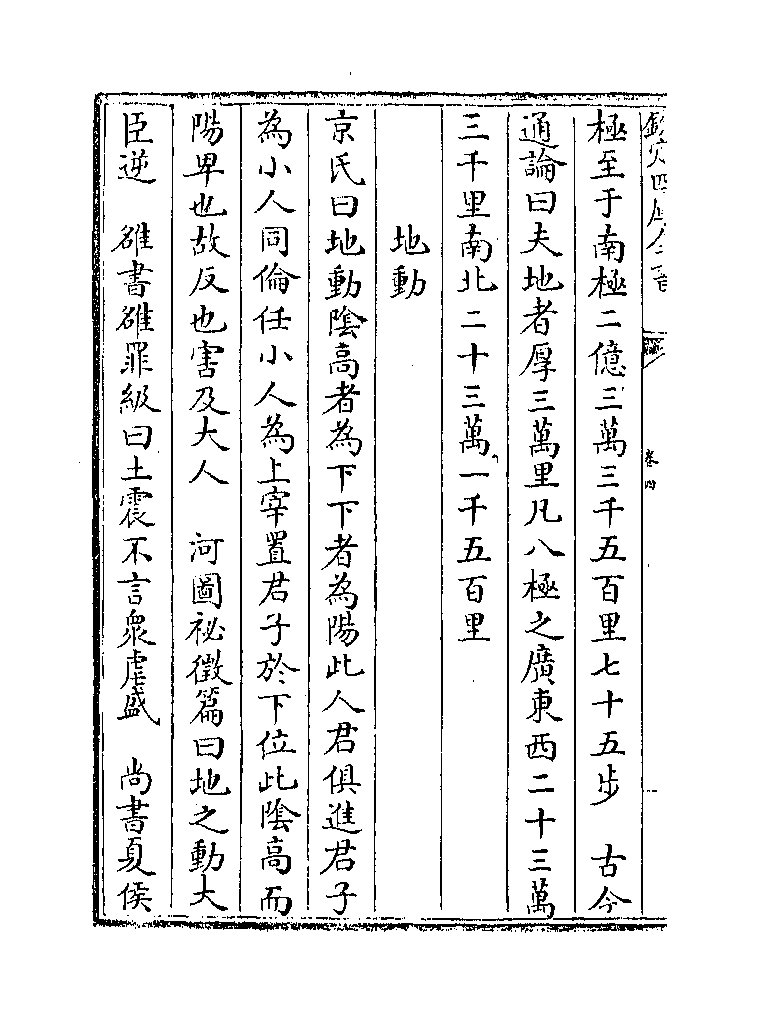 欽定四庫全書
卷四
極至于南極二億三萬三千五百里七十五步　古今
通論曰夫地者厚三萬里凡八極之廣東西二十三萬
三千里南北二十三萬一千五百里
地動
京氏曰地動陰高者為下下者為陽此人君俱進君子
為小人同倫任小人為上宰置君子於下位此陰高而
陽卑也故反也害及大人　河圖祕徵篇曰地之動大
臣逆　雒書雒罪級曰土震不言衆虐盛　尚書夏侯